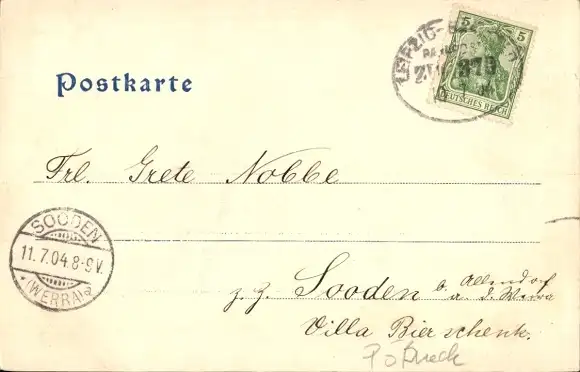 5 5
LEIPZIG-
ZUG 379
DEUTSCHES REICH
Postkarte
Frl. Grete Nobbe
SOODEN
11.7.04 8-9V.
(WERRA)
z. Z. Sooden b. Allendorf
a. d. Werra
Villa Bierschenk.